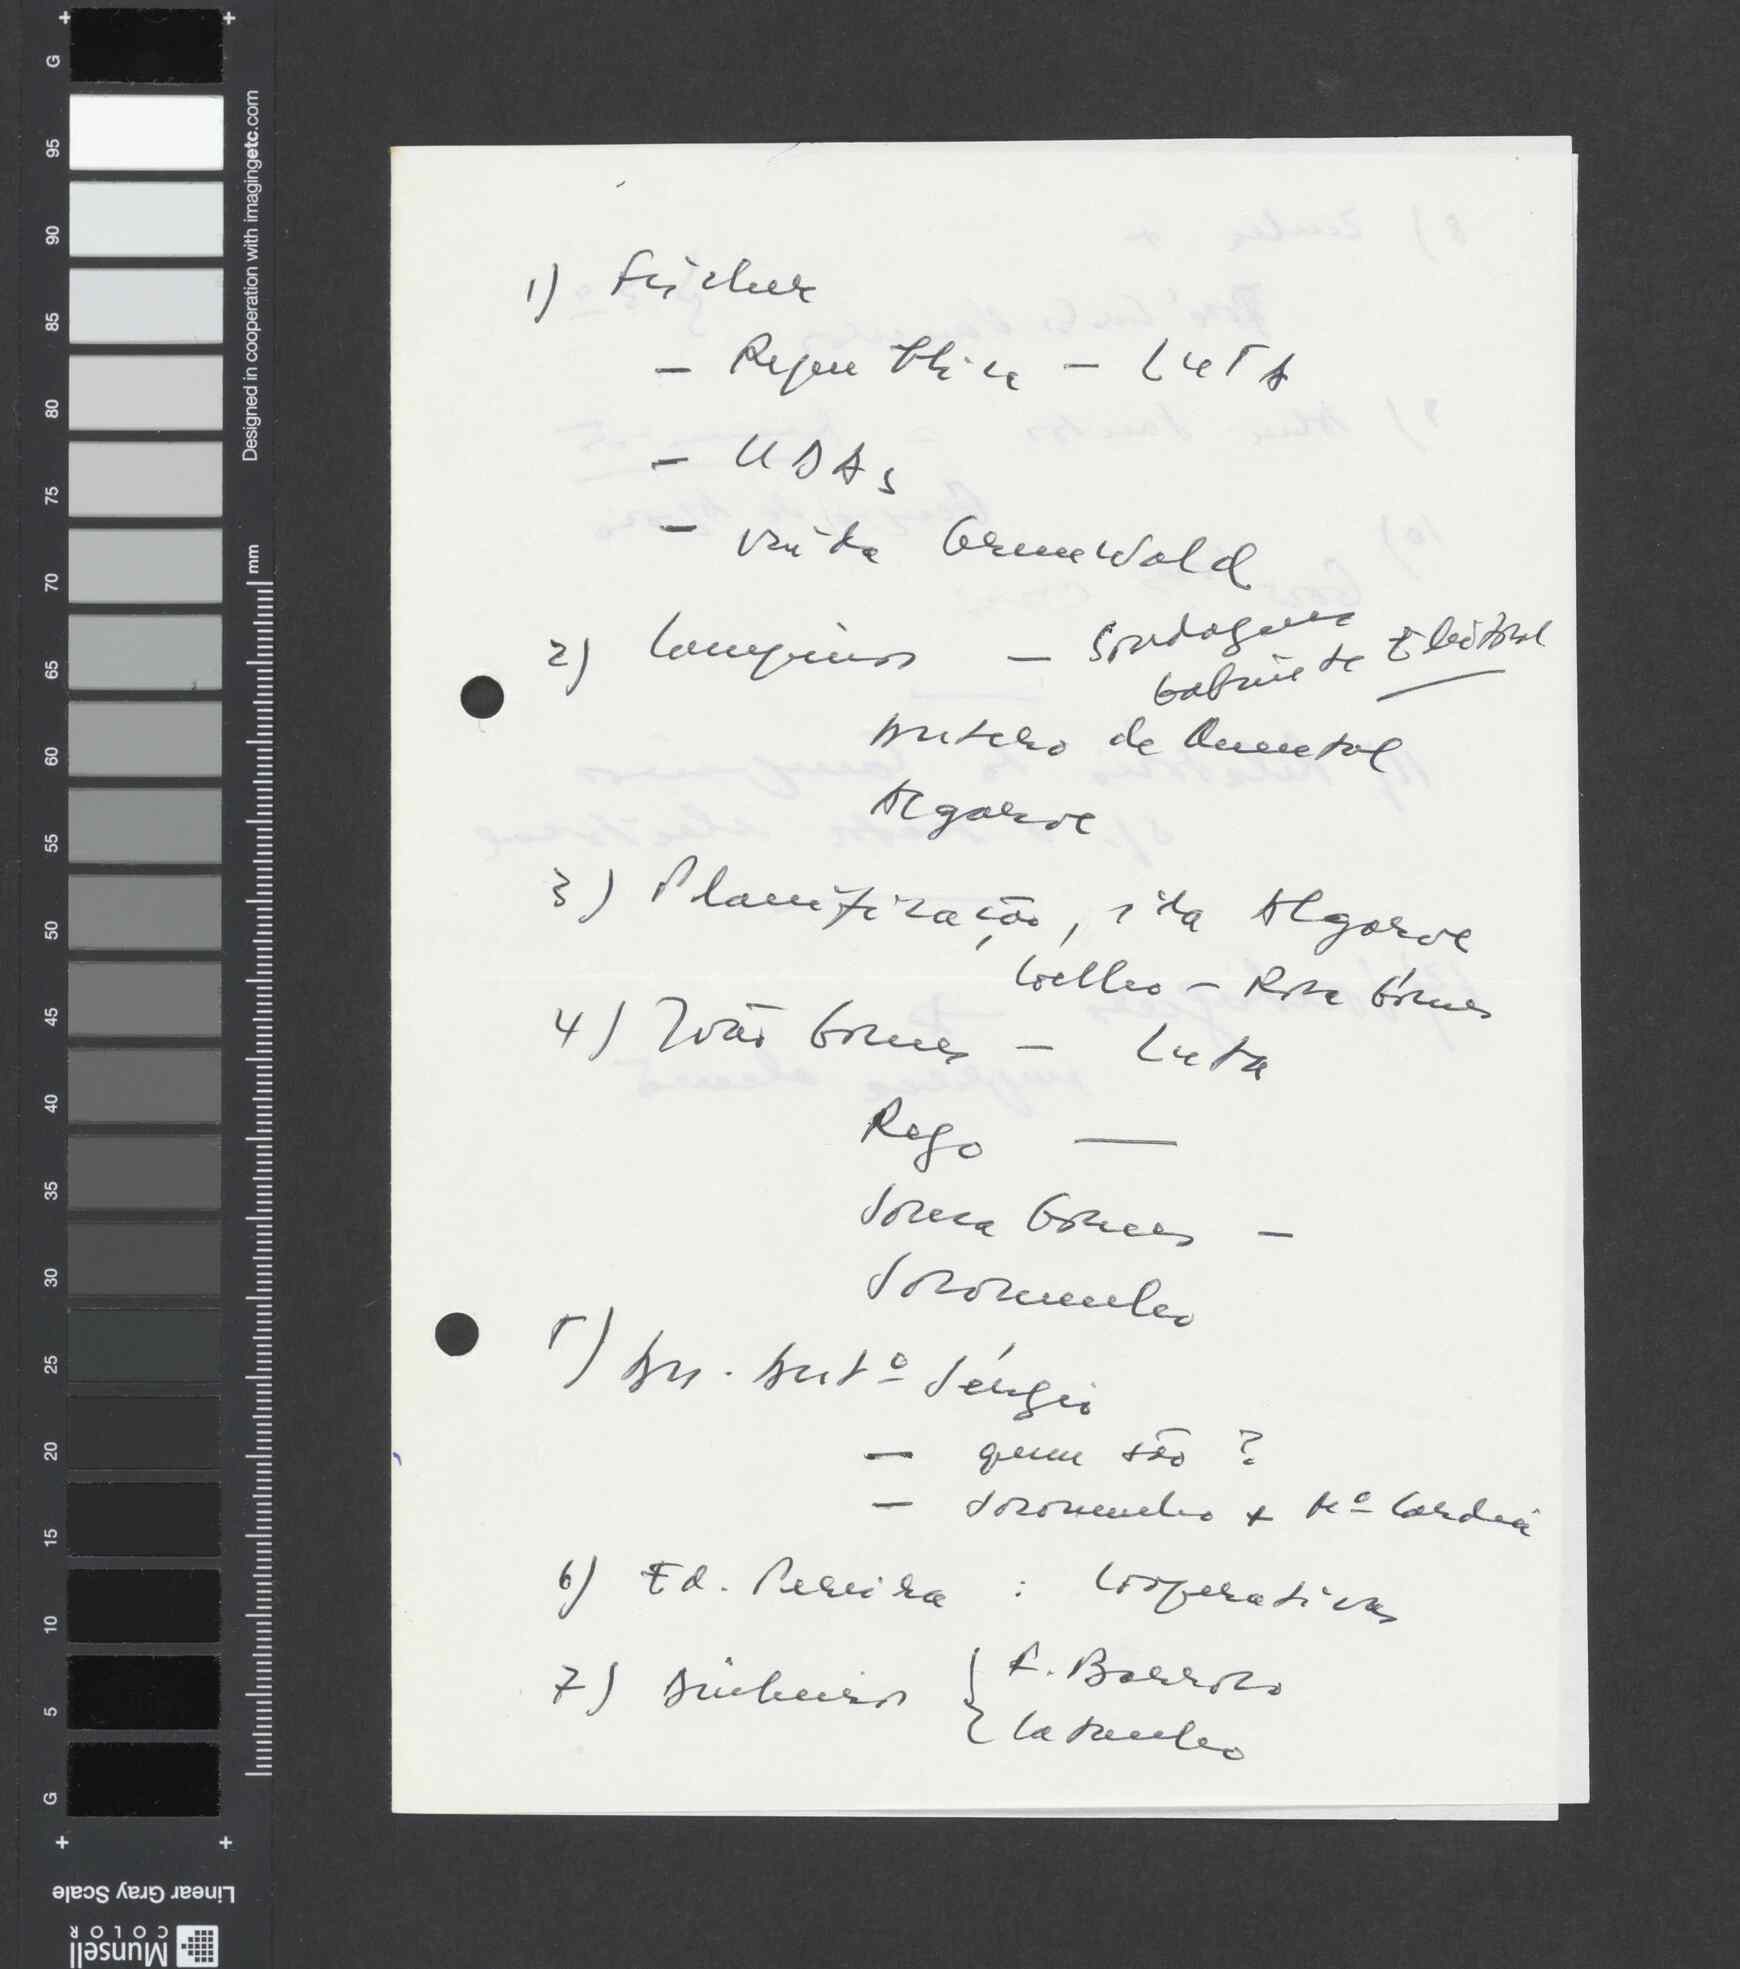 1) Fischer
- República - LUTA
- UDAs
- visita Grunewald
2) Campinos - Sondagens
Gabinete Eleitoral
Antero de Quental
Algarve
3) Planificação, ida Algarve
Coelho - Rosa Gomes
4) João Gomes - Luta
Rego —
Sousa Gomes -
Soromenho
5) Ass. Antº Sérgio
- quem são ?
- Soromenho + Mº Cardia
6) Ed. Pereira : Cooperativas
7) Dinheiros { A. Barroso
Catanho
G
95
90
85
80
75
70
65
60
55
50
45
40
35
30
25
20
15
10
5
G
Designed in cooperation with imagingetc.com
mm
Linear Gray Scale
Munsell
COLOR